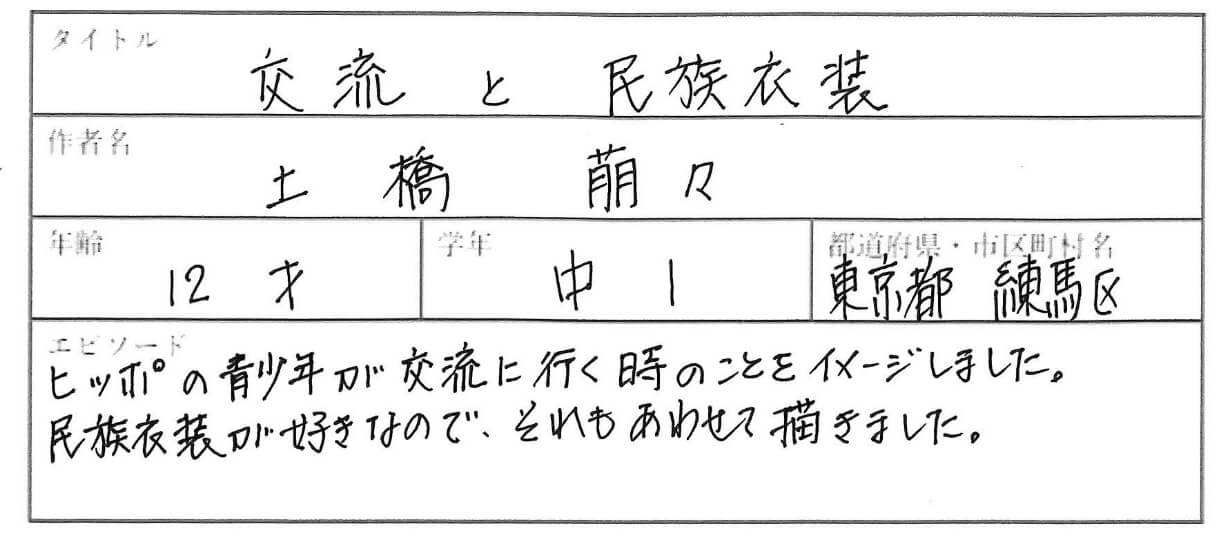 タイトル
交流と民族衣装
作者名
土橋 萠々
年齢
12才
学年
中1
都道府県・市区町村名
東京都 練馬区
エピソード
ヒッポの青少年が交流に行く時のことをイメージしました。
民族衣装が好きなので、それもあわせて描きました。